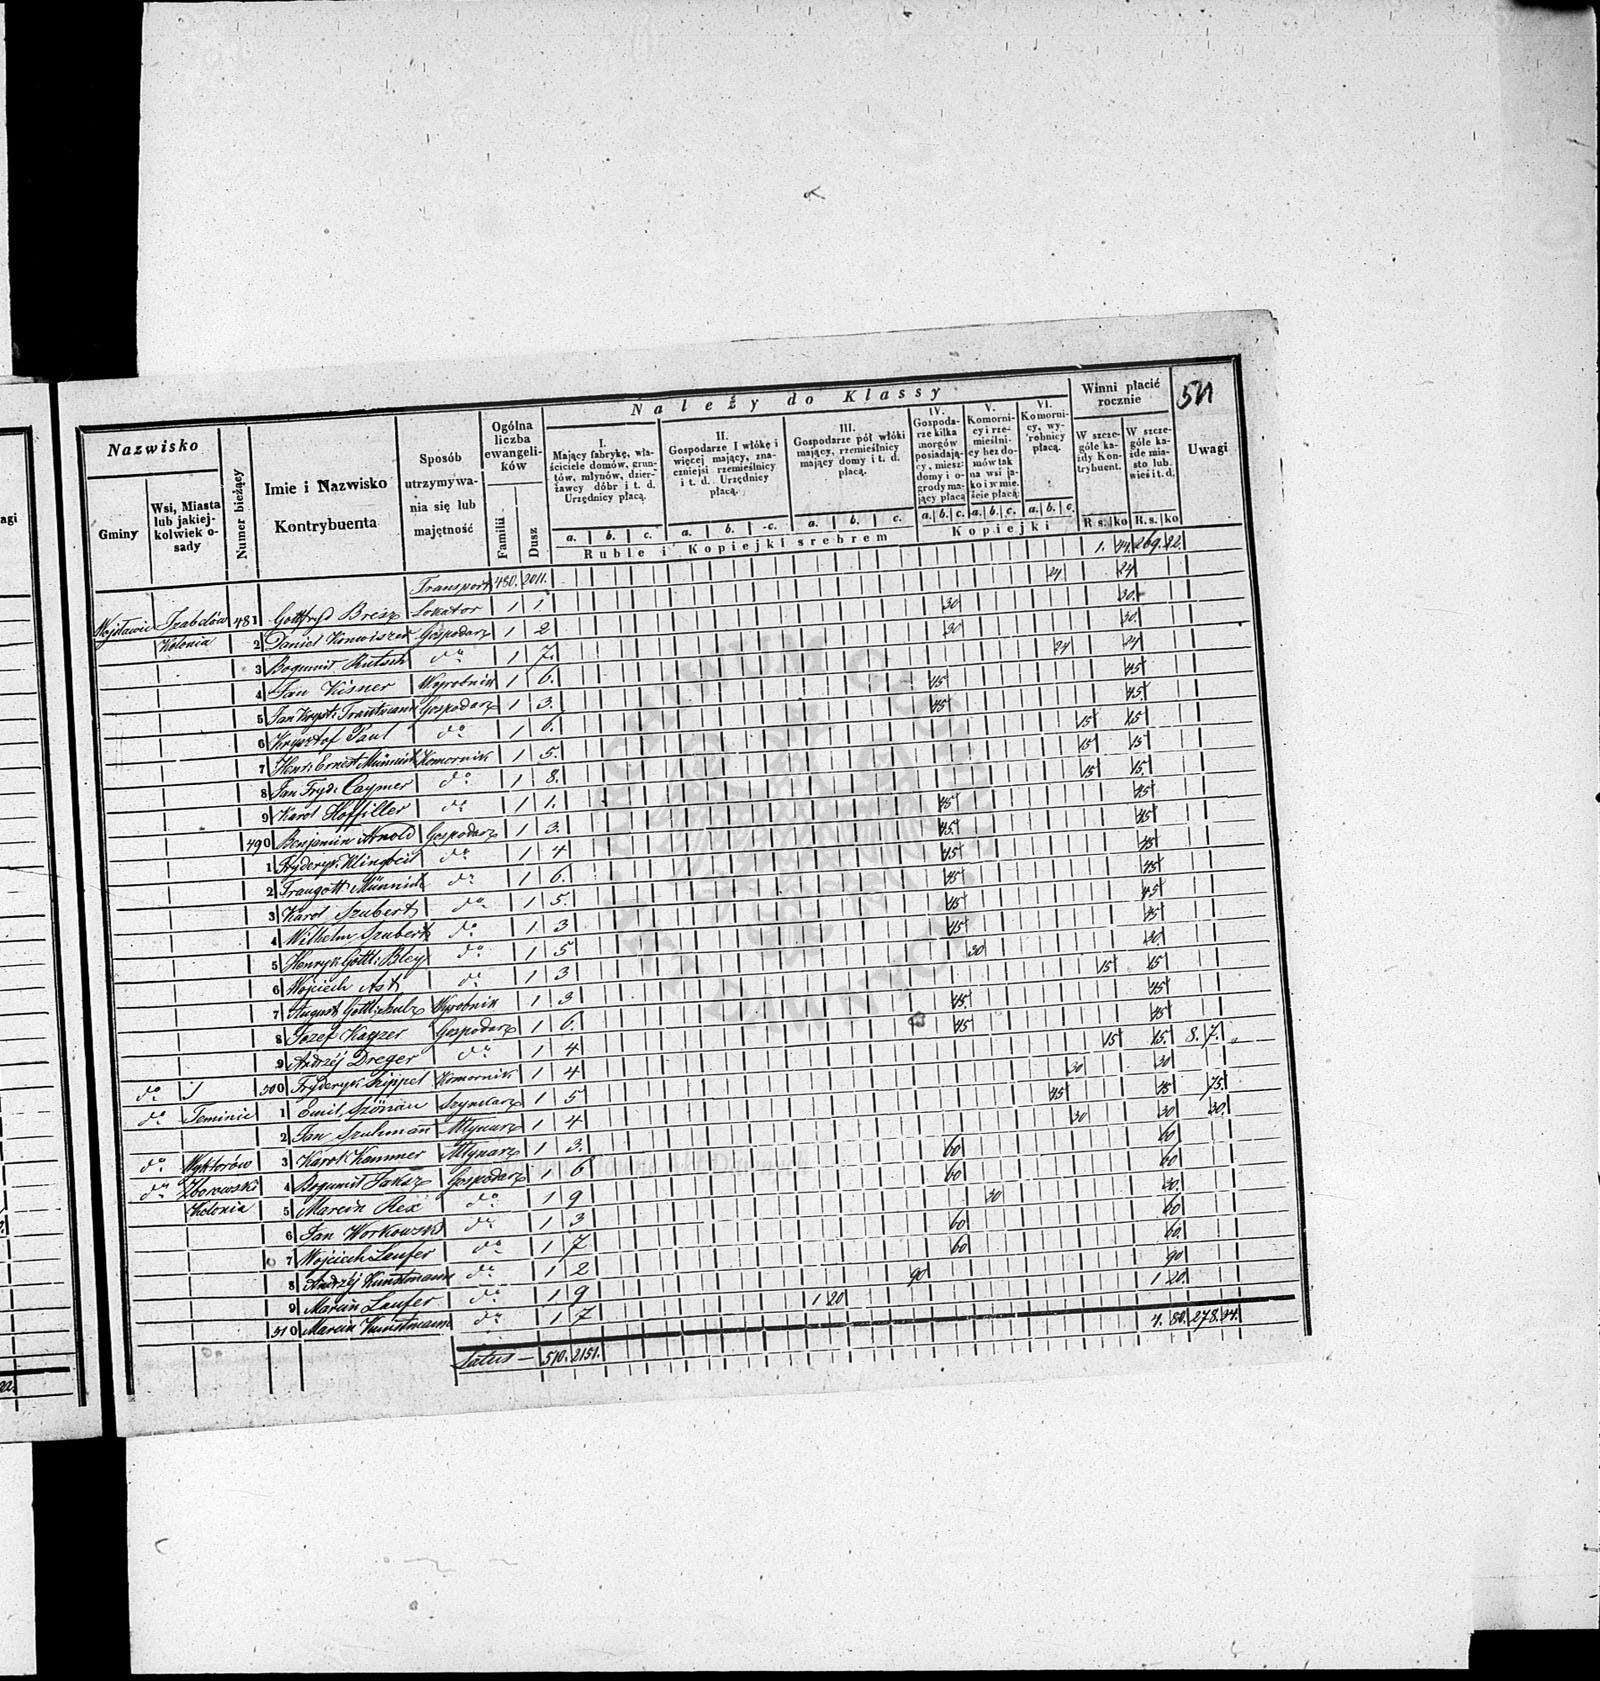 Nazwisko
Gminy
Wsi, Miasta lub jakiej-kolwiek o-sady
Numer bieżący
Imie i Nazwisko Kontrybuenta
Sposób utrzymywa-nia się lub majętność
Ogólna liczba ewangeli-ków
Familii
Dusz
Należy do Klassy
I. Mający fabrykę, wła-ściciele domów, grun-tów, młynów, dzier-żawcy dóbr i t. d. Urzędnicy płacą.
II. Gospodarze I włókę i więcej mający, zna-czniejsi rzemieślnicy i t. d. Urzędnicy płacą.
III. Gospodarze pół włóki mający, rzemieślnicy mający domy i t. d. płacą.
IV. Gospoda-rze kilka morgów posiadają-cy, miesz: domy i o-grody ma-jący płacą
V. Komorni-cy i rze-mieślni-cy bez do-mów tak na wsi ja-ko i w mie-ście płacą:
VI. Komorni-cy, wy-robnicy płacą.
Winni płacić rocznie
W szcze-góle ka-żdy Kon-trybuent.
W szcze-góle ka-żde mia-sto lub wieś i t. d.
511
Uwagi
agi
a. b. c. a. b. c. a. b. c. a. b. c. a. b. c. a. b. c.
Ruble i Kopiejki srebrem
Kopiejki
R s. ko R. s. ko
Transport 480. 2011. 1. 44. 269. 22.
Wojsławice Izabelów 481 Gottfryd Bresz Lokator 1 1 24 24
Kolonia 2 Daniel Konwiszer Gospodarz 1 2 30 30.
3 Bogumił Rutsch do 1 7. 30 30.
4 Jan Kisner Wyrobnik 1 6. 24 24
5 Jan Kryst: Trautmann Gospodarz 1 3. 45 45.
6 Krysztof Paul do 1 6. 45 45.
7 Henr: Ernest Münnich Komornik 1 5. 15 15
8 Jan Fryd: Caymer do 1 8. 15 15
9 Karol Hoffiller do 1 1. 15 15.
490 Benjamin Arnold Gospodarz 1 3. 45 45
1 Fryderyk Klingbeil do 1 4 45. 45
2 Traugott Münnich do 1 6. 45 45
3 Karol Szubert do 1 5. 45 45
4 Wilhelm Szubert do 1 3 45 45
5 Henryk Gottl: Bley do 1 5 45 45
6 Wojciech Ast do 1 3 30 30.
7 August Gottl: Szulz Wyrobnik 1 3 15 15
8 Jozef Kayzer Gospodarz 1 6. 45. 45
9 Andrzéj Dreger do 1 4 45 45
do 500 Fryderyk Szippel Komornik 1 4 15 15. 8. 7.
do Teminie 1 Emil Szönau Szynkarz 1 5 30 30
2 Jan Szuhman Młynarz 1 4 45 45 75.
do Wyktorów 3 Karol Kammer Młynarz 1 3. 30 30 30.
do Zborowski 4 Bogumił Jaksz Gospodarz 1 6 60 60
Kolonia 5 Marcin Rex do 1 9 60 60
6 Jan Workowski do 1 3 30 30.
7 Wojciech Laufer do 1 7 60 60
8 Andrzéj Kunstmann do 1 2 60 60.
9 Marcin Laufer do 1 9 90 90
510 Marcin Kunstmann do 1 7 1 20 1 20.
Latus — 510. 2151. 4. 80. 278. 34.